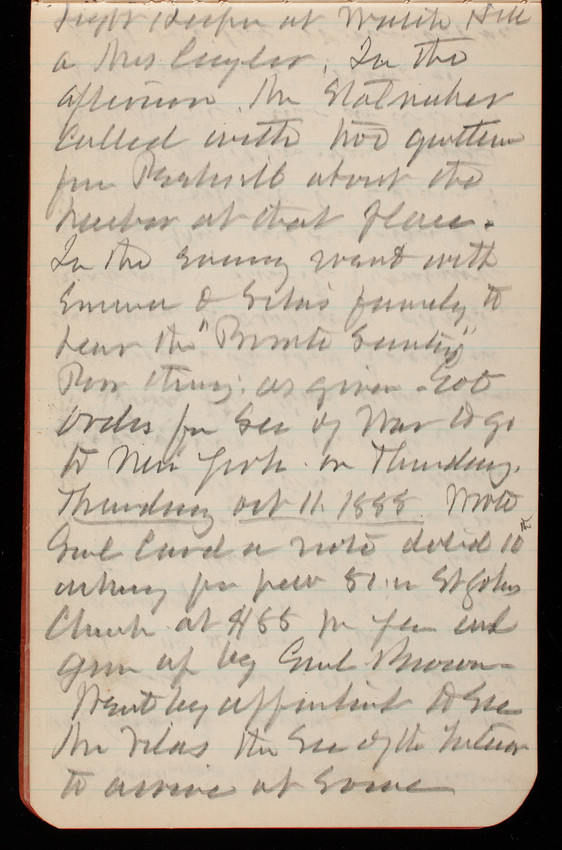 Light Keeper at Watch Hill
a Mrs Cuyler. In the
afternoon Mr
called with two gentlemen
from Peekskill about the
at that place.
In the evening went with
Emma & family to
hear the "Private Secretary"
Poor thing. as given - Got
order from Sec of War to go
to New York on Thursday.
Thursday Oct 11. 1888. Wrote
Genl Card a note dated 10th
asking for pew 81 in St Johns
Church at $88 per year and
given up by Genl Brown -
Went by appointment to see
Mr Vilas the Sec of the Interior
to arrive at some